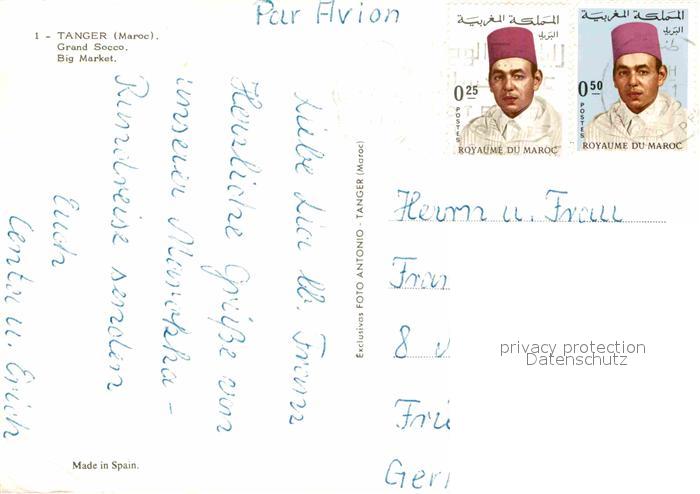 Par Avion
1 - TANGER (Maroc).
Grand Socco.
Big Market.
المملكة المغربية
البريد
0.25
POSTES
ROYAUME DU MAROC
المملكة المغربية
البريد
0.50
POSTES
ROYAUME DU MAROC
Liebe Lia u. Franz
Herzliche Grüße von
unserer Marokko-
Rundreise senden
Euch
Centa u. Erich
Exclusivas FOTO ANTONIO - TANGER (Maroc)
Herrn u. Frau
Fran
8
Frü
Ger
privacy protection
Datenschutz
Made in Spain.